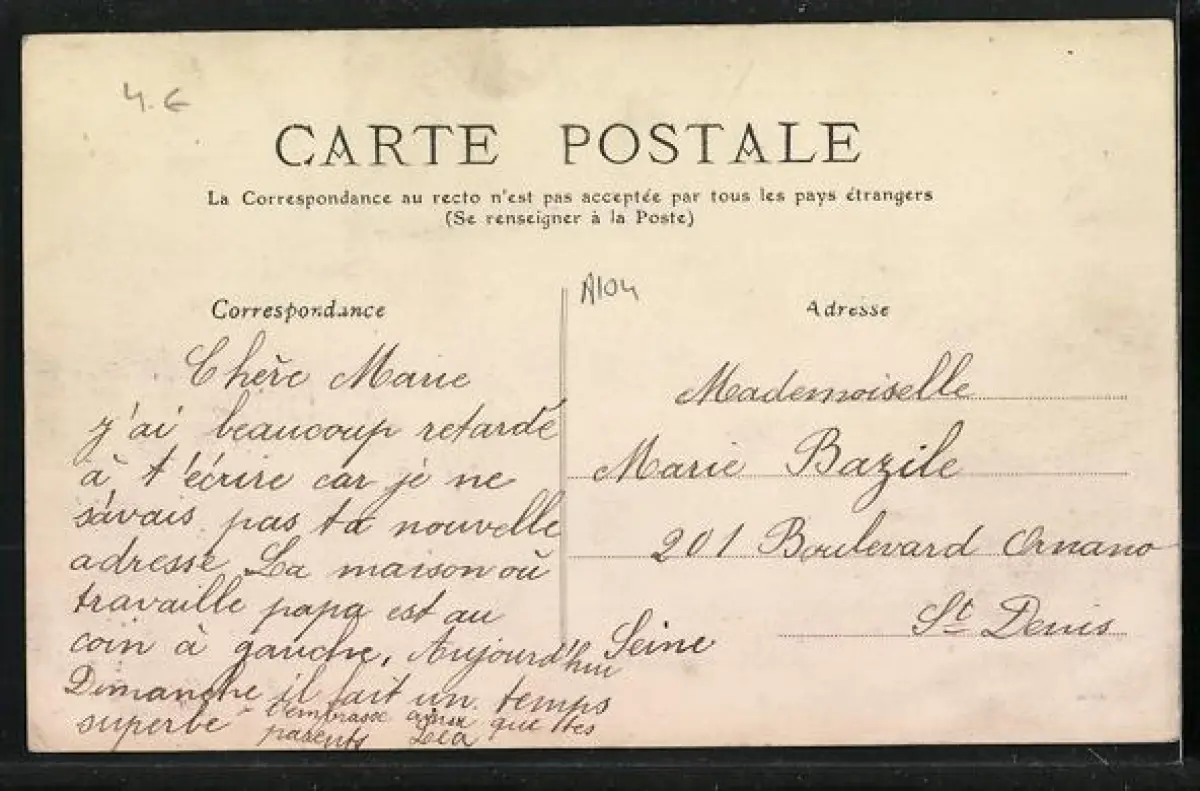 4.€
CARTE POSTALE
La Correspondance au recto n'est pas acceptée par tous les pays étrangers
(Se renseigner à la Poste)
A104
Correspondance
Chère Marie
j'ai beaucoup retardé
à t'écrire car je ne
savais pas ta nouvelle
adresse La maison où
travaille papa est au
coin à gauche, Aujourd'hui
Dimanche il fait un temps
superbe t'embrasse ainsi que tes
parents Léa
Adresse
Mademoiselle
Marie Bazile
201 Boulevard Ornano
St Denis
Seine